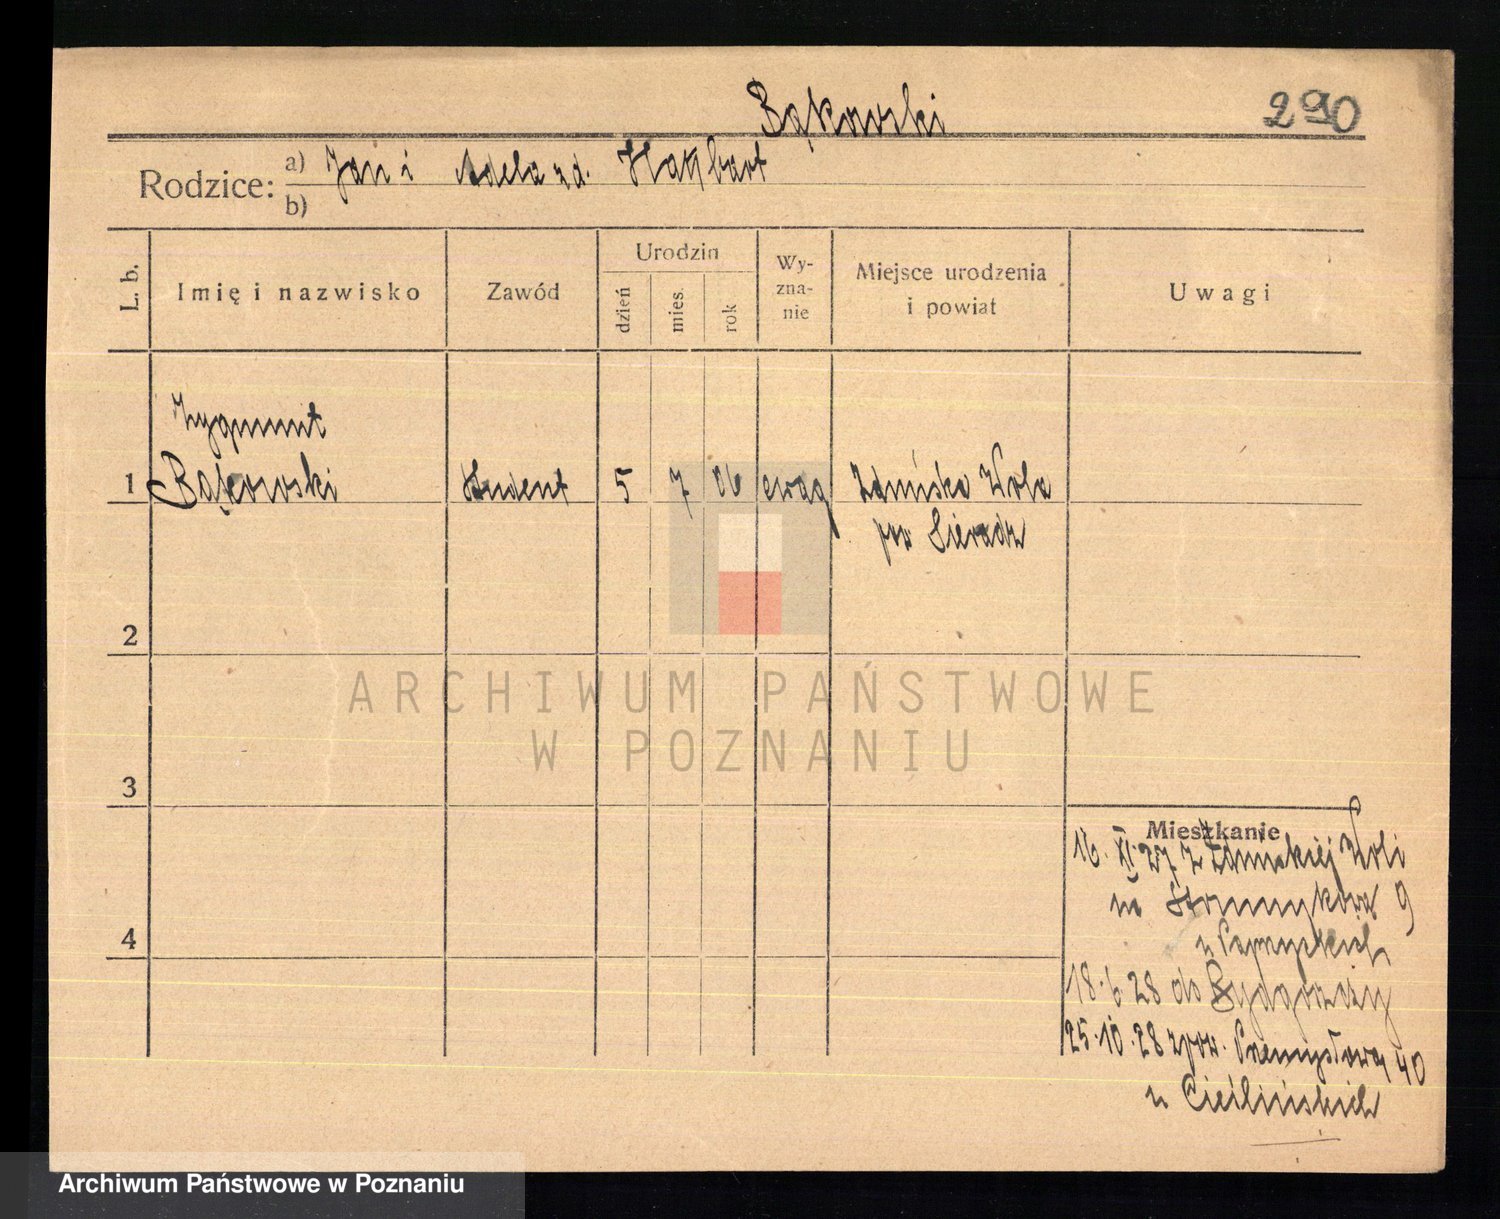 Bąkowski
290
Rodzice: a) Jan i Adela zd.
b)
L. b.
Imię i nazwisko
Zawód
Urodzin
dzień
mies.
rok
Wy-
zna-
nie
Miejsce urodzenia
i powiat
Uwagi
Zygmunt
1 Bąkowski student 5 7 06 ewag Zduńska Wola
pow Sieradz
2
ARCHIWUM PAŃSTWOWE
W POZNANIU
3
Mieszkanie
16. XI. 27 z Zduńskiej Woli
na 9
u
4
18.6.28 do Bydgoszczy
25.10.28 zpow. Przemysłowa 40
u Cieślińskich
Archiwum Państwowe w Poznaniu